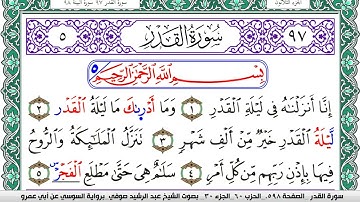 الجزء الثلاثون
سورة القدر ٩٧ سورة البينة ٩٨
٩٧ سُورَةُ القَدْرِ ٥
بِسْمِ اللَّهِ الرَّحْمَٰنِ الرَّحِيمِ ٥
إِنَّا أَنزَلْنَٰهُ فِي لَيْلَةِ القَدْرِ ١ وَمَا أَدْرِىٰكَ مَا لَيْلَةُ القَدْرِ ٢
لَيْلَةُ القَدْرِ خَيْرٌ مِّنْ أَلْفِ شَهْرٍ ٣ تَنَزَّلُ المَلَٰٓئِكَةُ وَالرُّوحُ
فِيهَا بِإِذْنِ رَبِّهِم مِّن كُلِّ أَمْرٍ ٤ سَلَٰمٌ هِيَ حَتَّىٰ مَطْلَعِ الفَجْرِ ٥
سورة القدر الصفحة ٥٩٨ الحزب ٦٠ الجزء ٣٠ بصوت الشيخ عبد الرشيد صوفي برواية السوسي عن أبي عمرو